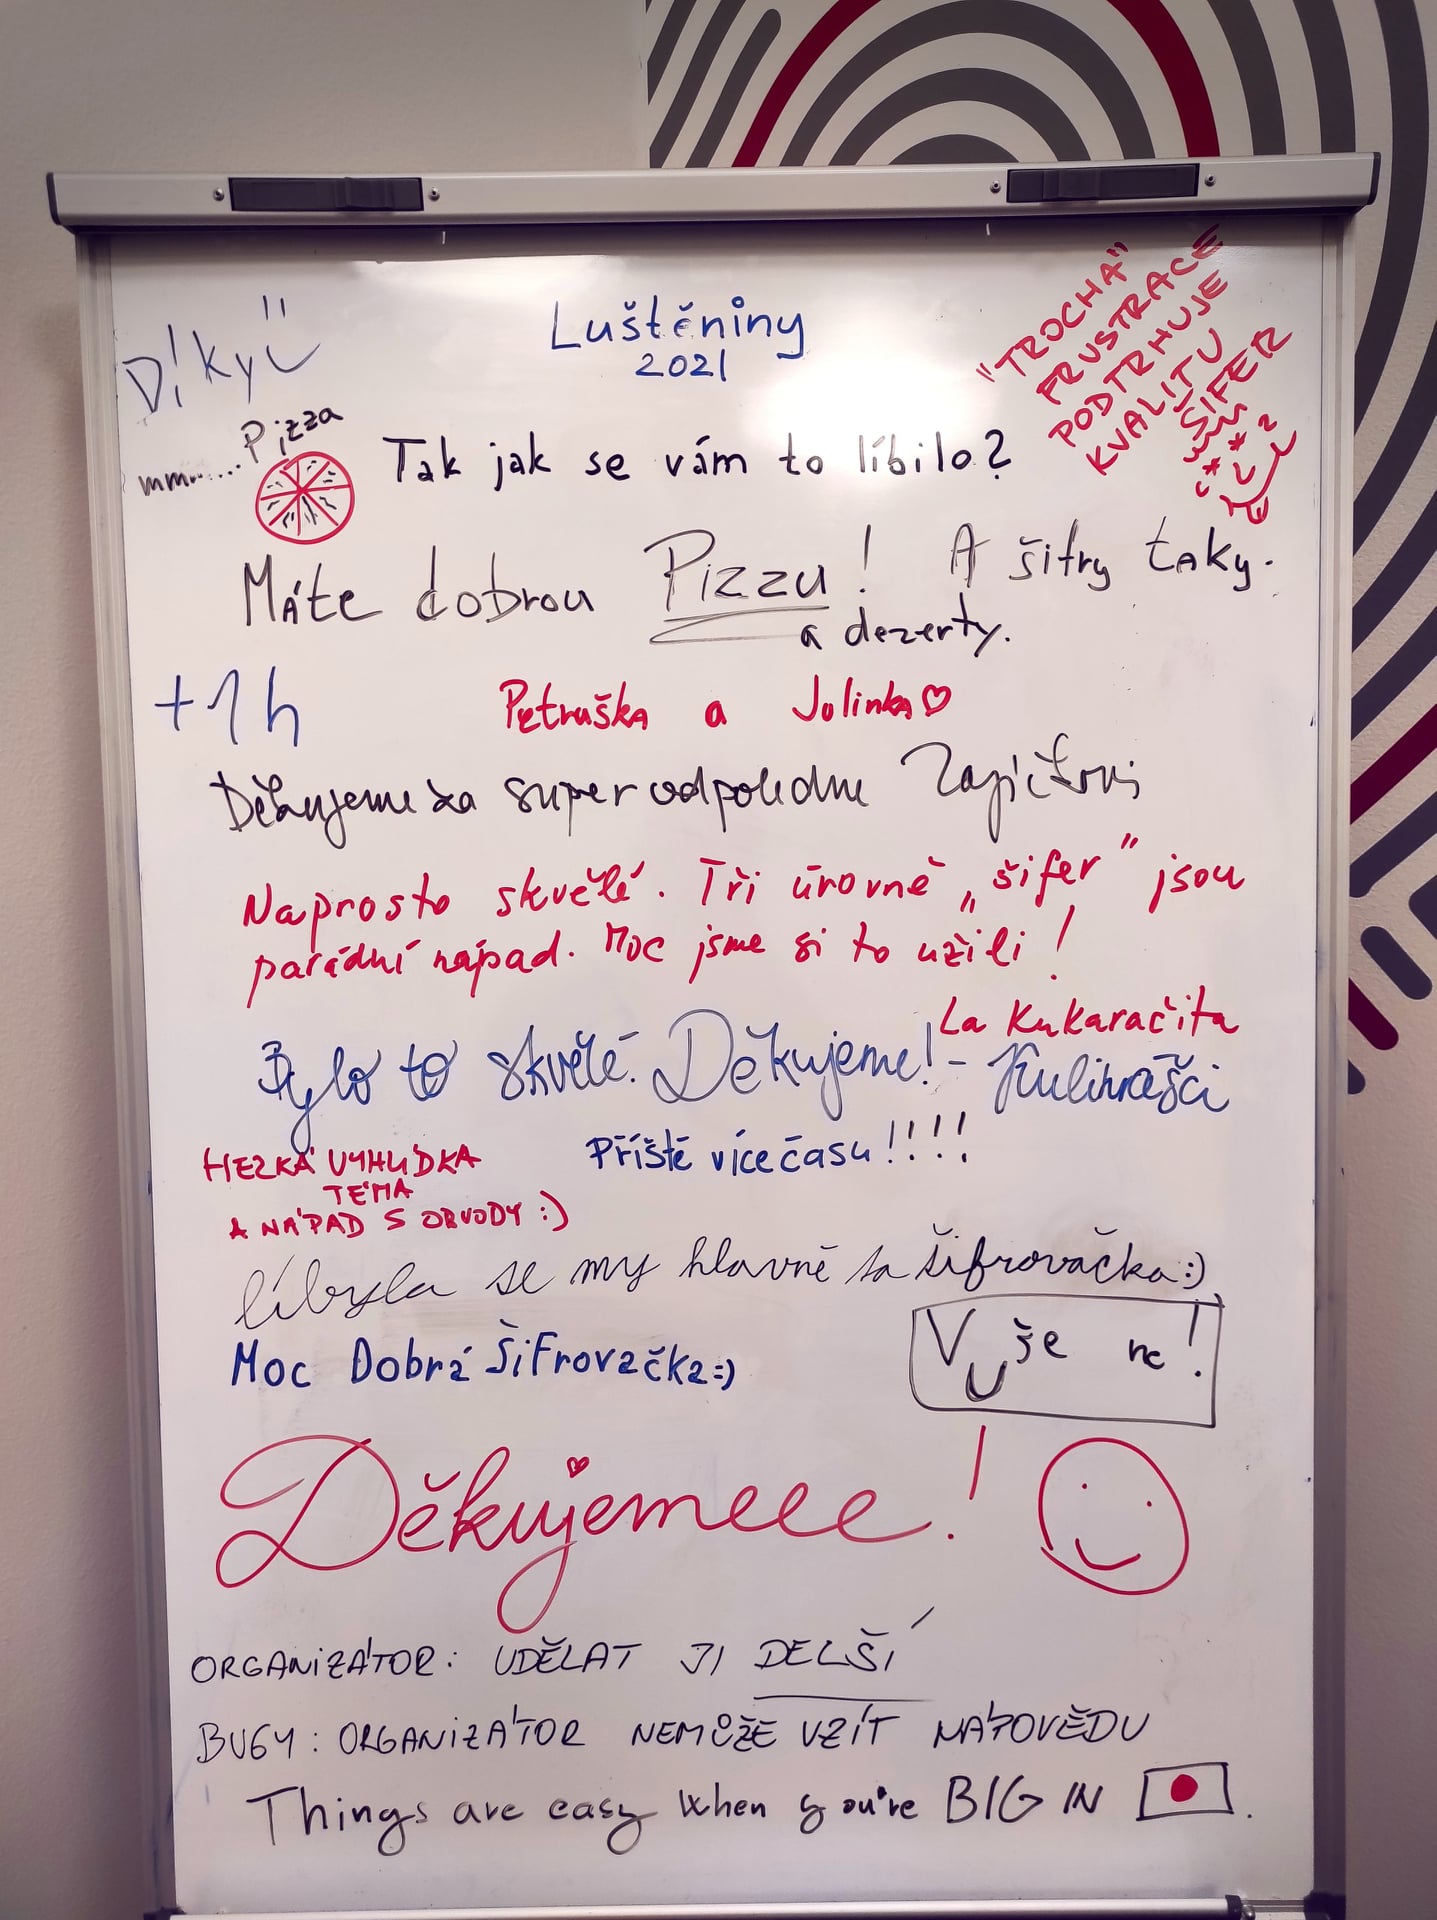 Luštěniny
2021
Díky
"TROCHA"
FRUSTRACE
PODTRHUJE
KVALITU
ŠIFER
mm...... Pizza
Tak jak se vám to líbilo?
Máte dobrou Pizzu! A šifry taky.
a dezerty.
+1h
Petruška a Jolinka♡
Děkujeme za super odpoledne Zajíčkovi
Naprosto skvělé. Tři úrovně „šifer" jsou
parádní nápad. Moc jsme si to užili!
La Kukaračita
Bylo to skvělé. Děkujeme! - Kulihrášci
Příště více času!!!!!
HEZKÁ VYHLÍDKA
TÉMA
A NÁPAD S OBVODY :)
líbyla se my hlavně ta šifrovačka:)
Moc Dobrá Šifrovačka:)
Vuše ne!
Děkujemeee!
ORGANIZÁTOR: UDĚLAT JI DELŠÍ
BUGY: ORGANIZÁTOR NEMŮŽE VZÍT NÁPOVĚDU
Things are easy when you're BIG IN